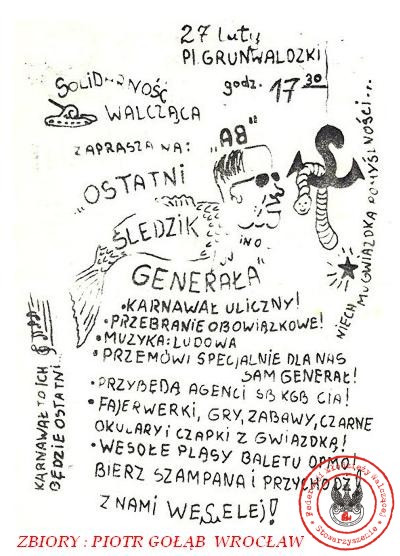 27 luty
Pl. GRUNWALDZKI
godz. 17 30
SOLIDARNOŚĆ
WALCZĄCA
ZAPRASZA NA:
"OSTATNI
ŚLEDZIK
GENERAŁA"
NIECH MU GWIAZDKA POMYŚLNOŚCI...
• KARNAWAŁ ULICZNY!
• PRZEBRANIE OBOWIĄZKOWE!
• MUZYKA: LUDOWA
• PRZEMÓWI SPECJALNIE DLA NAS
SAM GENERAŁ!
• PRZYBĘDĄ AGENCI SB KGB CIA!
• FAJERWERKI, GRY, ZABAWY, CZARNE
OKULARY I CZAPKI Z GWIAZDKĄ!
• WESOŁE PLĄSY BALETU OPMO!
BIERZ SZAMPANA I PRZYCHODŹ!
Z NAMI WESELEJ!
KARNAWAŁ TO ICH
BĘDZIE OSTATNI...
Stowarzyszenie
ZBIORY : PIOTR GOŁĄB WROCŁAW